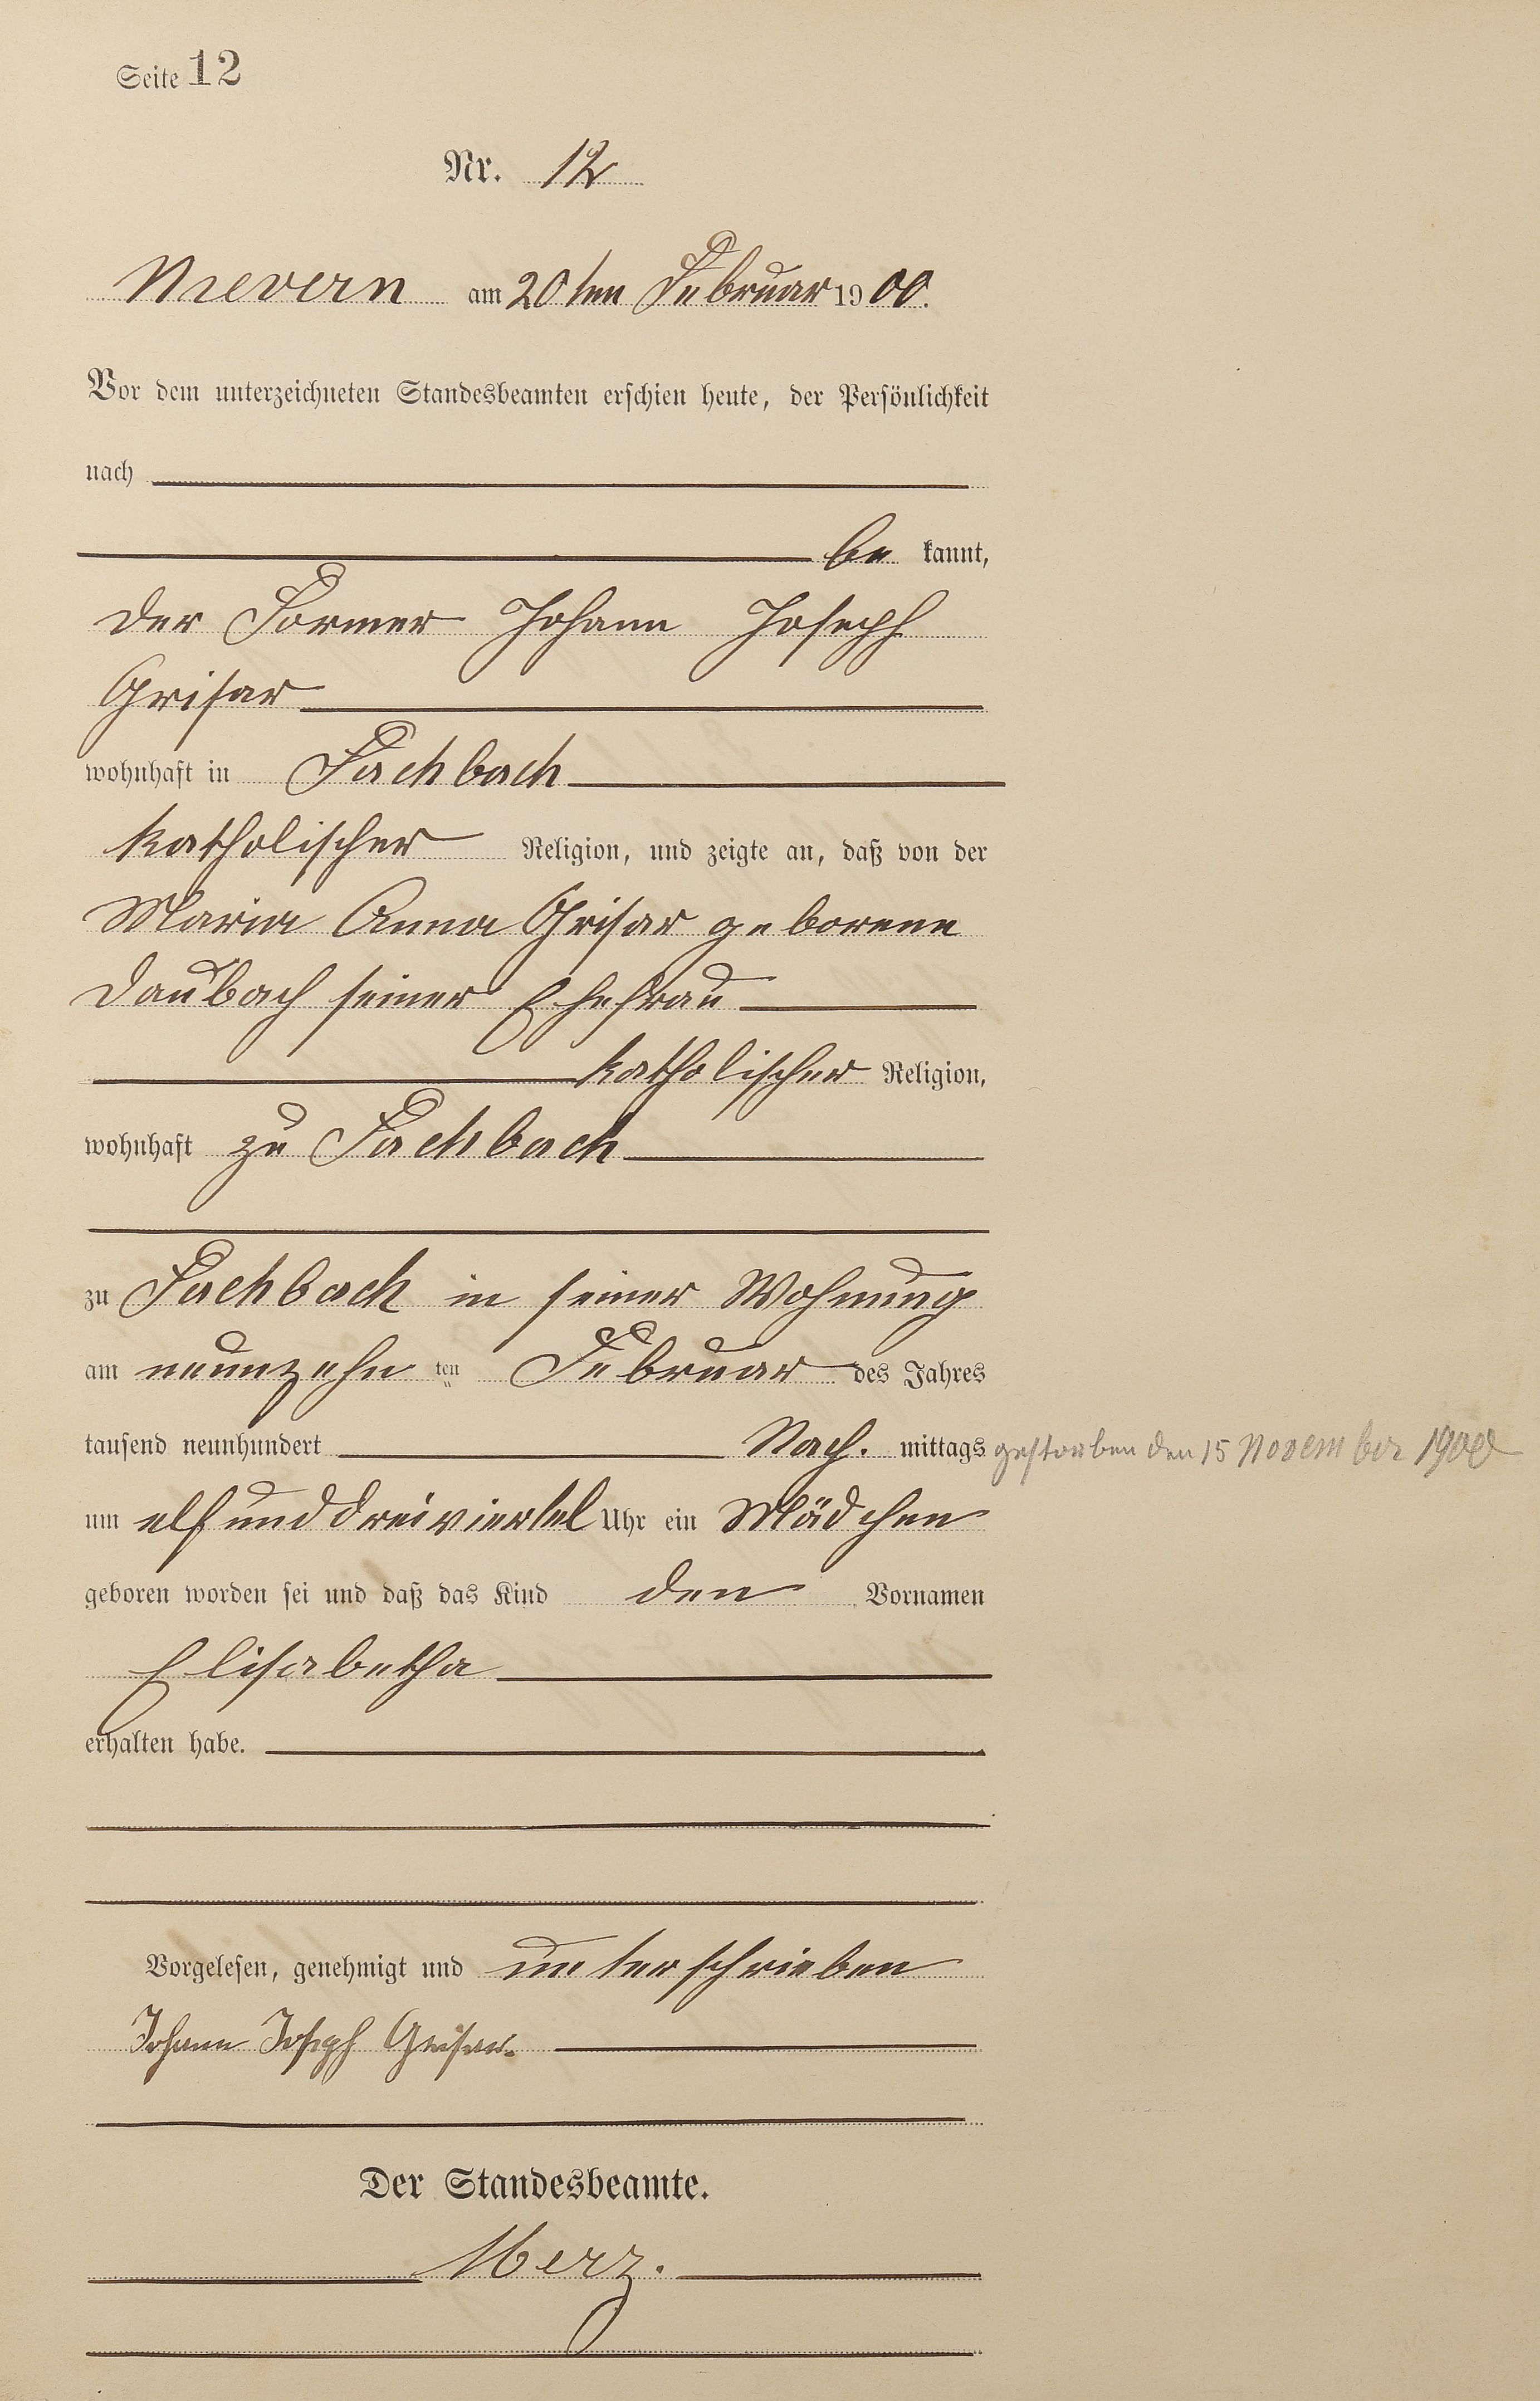 Seite 12
Nr. 12
Nievern am 20ten Februar 1900.
Vor dem unterzeichneten Standesbeamten erschien heute, der Persönlichkeit
nach
be kannt,
der Former Johann Joseph
Grisar
wohnhaft in Fachbach
katholischer Religion, und zeigte an, daß von der
Maria Anna Grisar geborene
Daubach seiner Ehefrau
katholischer Religion,
wohnhaft zu Fachbach
zu Fachbach in seiner Wohnung
am neunzehn ten Februar des Jahres
tausend neunhundert Nach. mittags gestorben den 15 November 1900
um elf und dreiviertel Uhr ein Mädchen
geboren worden sei und daß das Kind den Vornamen
Elisabetha
erhalten habe.
Vorgelesen, genehmigt und unterschrieben
Johann Joseph Grisar.
Der Standesbeamte.
Merz.